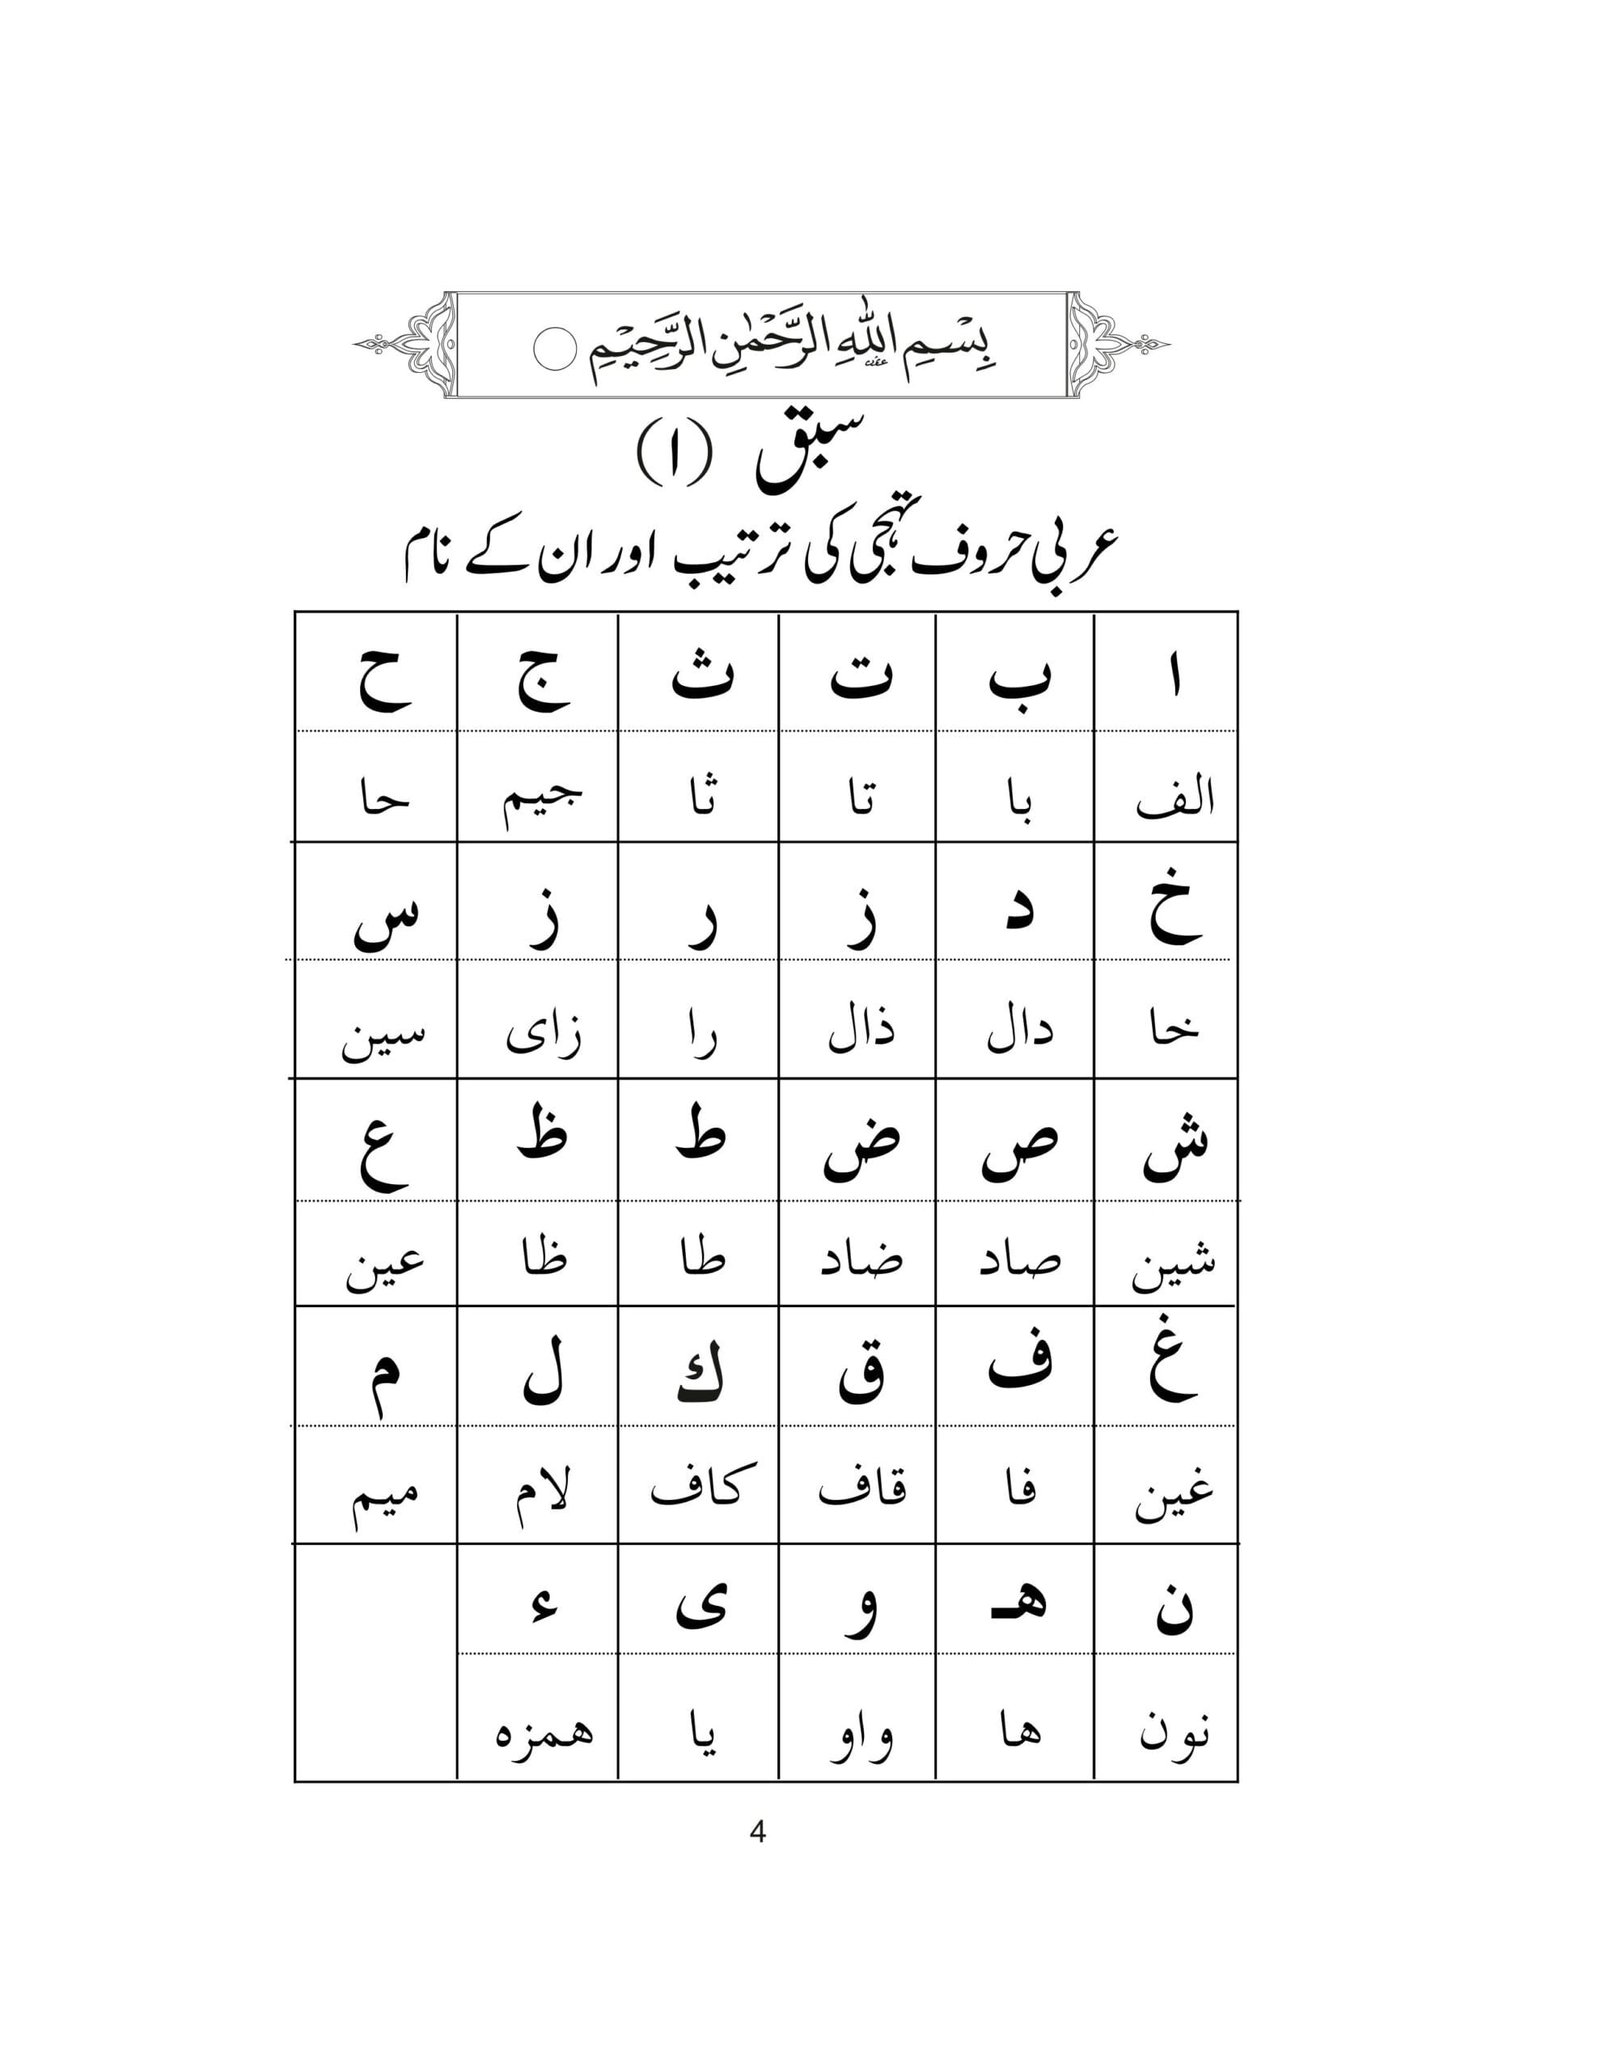 بِسْمِ اللهِ الرَّحْمٰنِ الرَّحِيْمِ
سبق (۱)
عربی حروف تہجی کی ترتیب اور ان کے نام
ا ب ت ث ج ح
الف با تا ثا جیم حا
خ د ز ر ز س
خا دال ذال را زای سین
ش ص ض ط ظ ع
شین صاد ضاد طا ظا عین
غ ف ق ك ل م
غین فا قاف کاف لام میم
ن هـ و ی ء
نون ها واو یا همزه
4